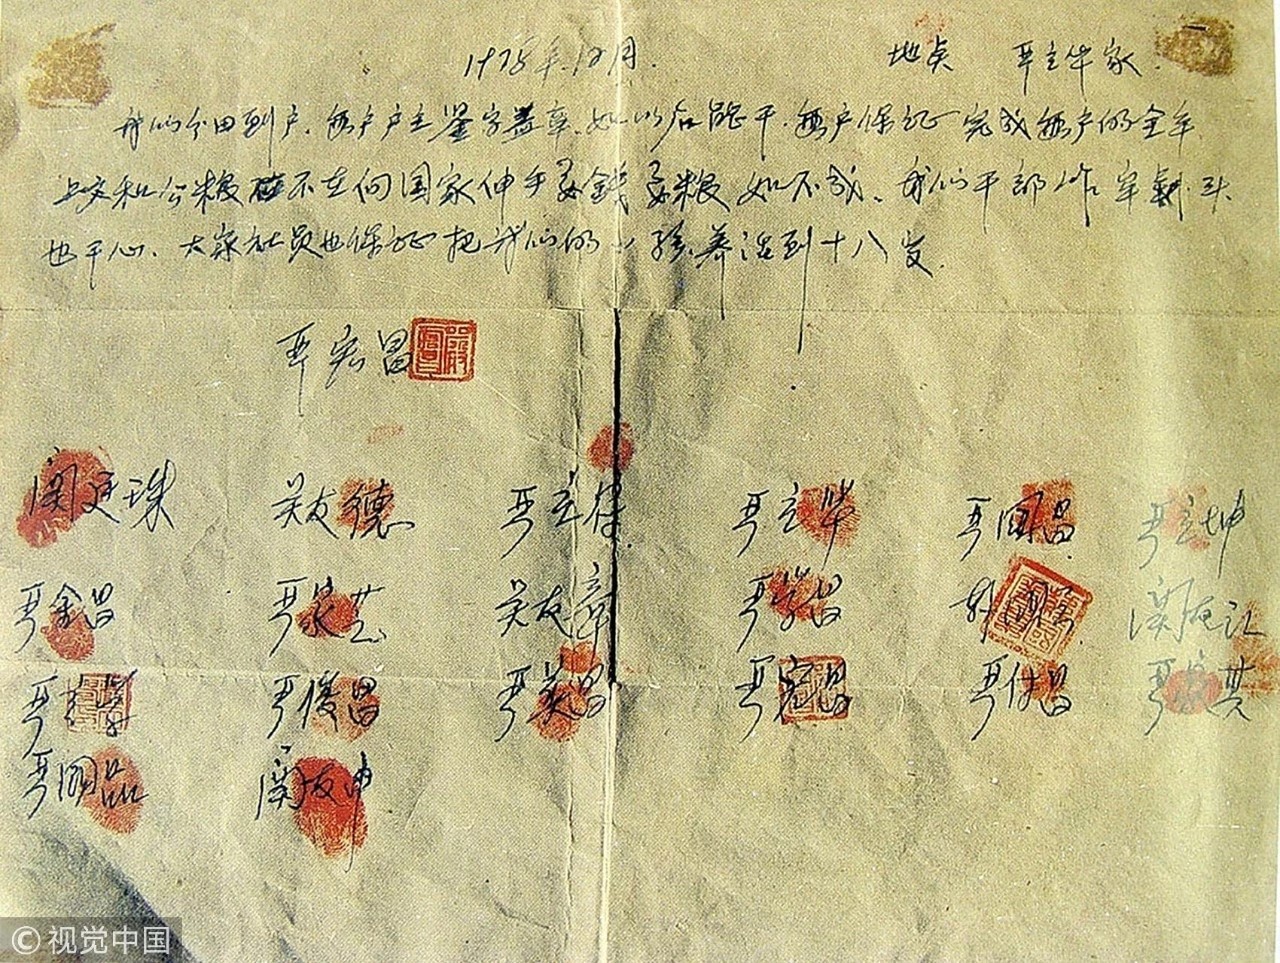 1978年12月. 地点 严立华家.
我们分田到户. 每户户主鉴字盖章. 如以后能干. 每户保证完成每户的全年
上交和公粮 不在向国家伸手要钱要粮 如不成. 我们干部作牢剎头
也干心. 大家社员也保证把我们的小孩. 养活到十八岁.
严宏昌
关廷珠 关友德 严立符 严立华 严国昌 严立坤
严金昌 严家芝 关友章 严学昌 韩国云 关友江
严立学 严俊昌 严美昌 严宏昌 严付昌 严家其
严国品 关友申
© 视觉中国